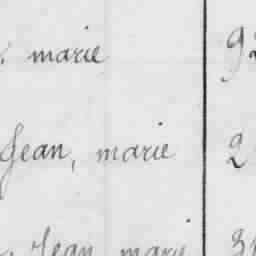 marie 92
Jean, marie 2
Jean marie 3